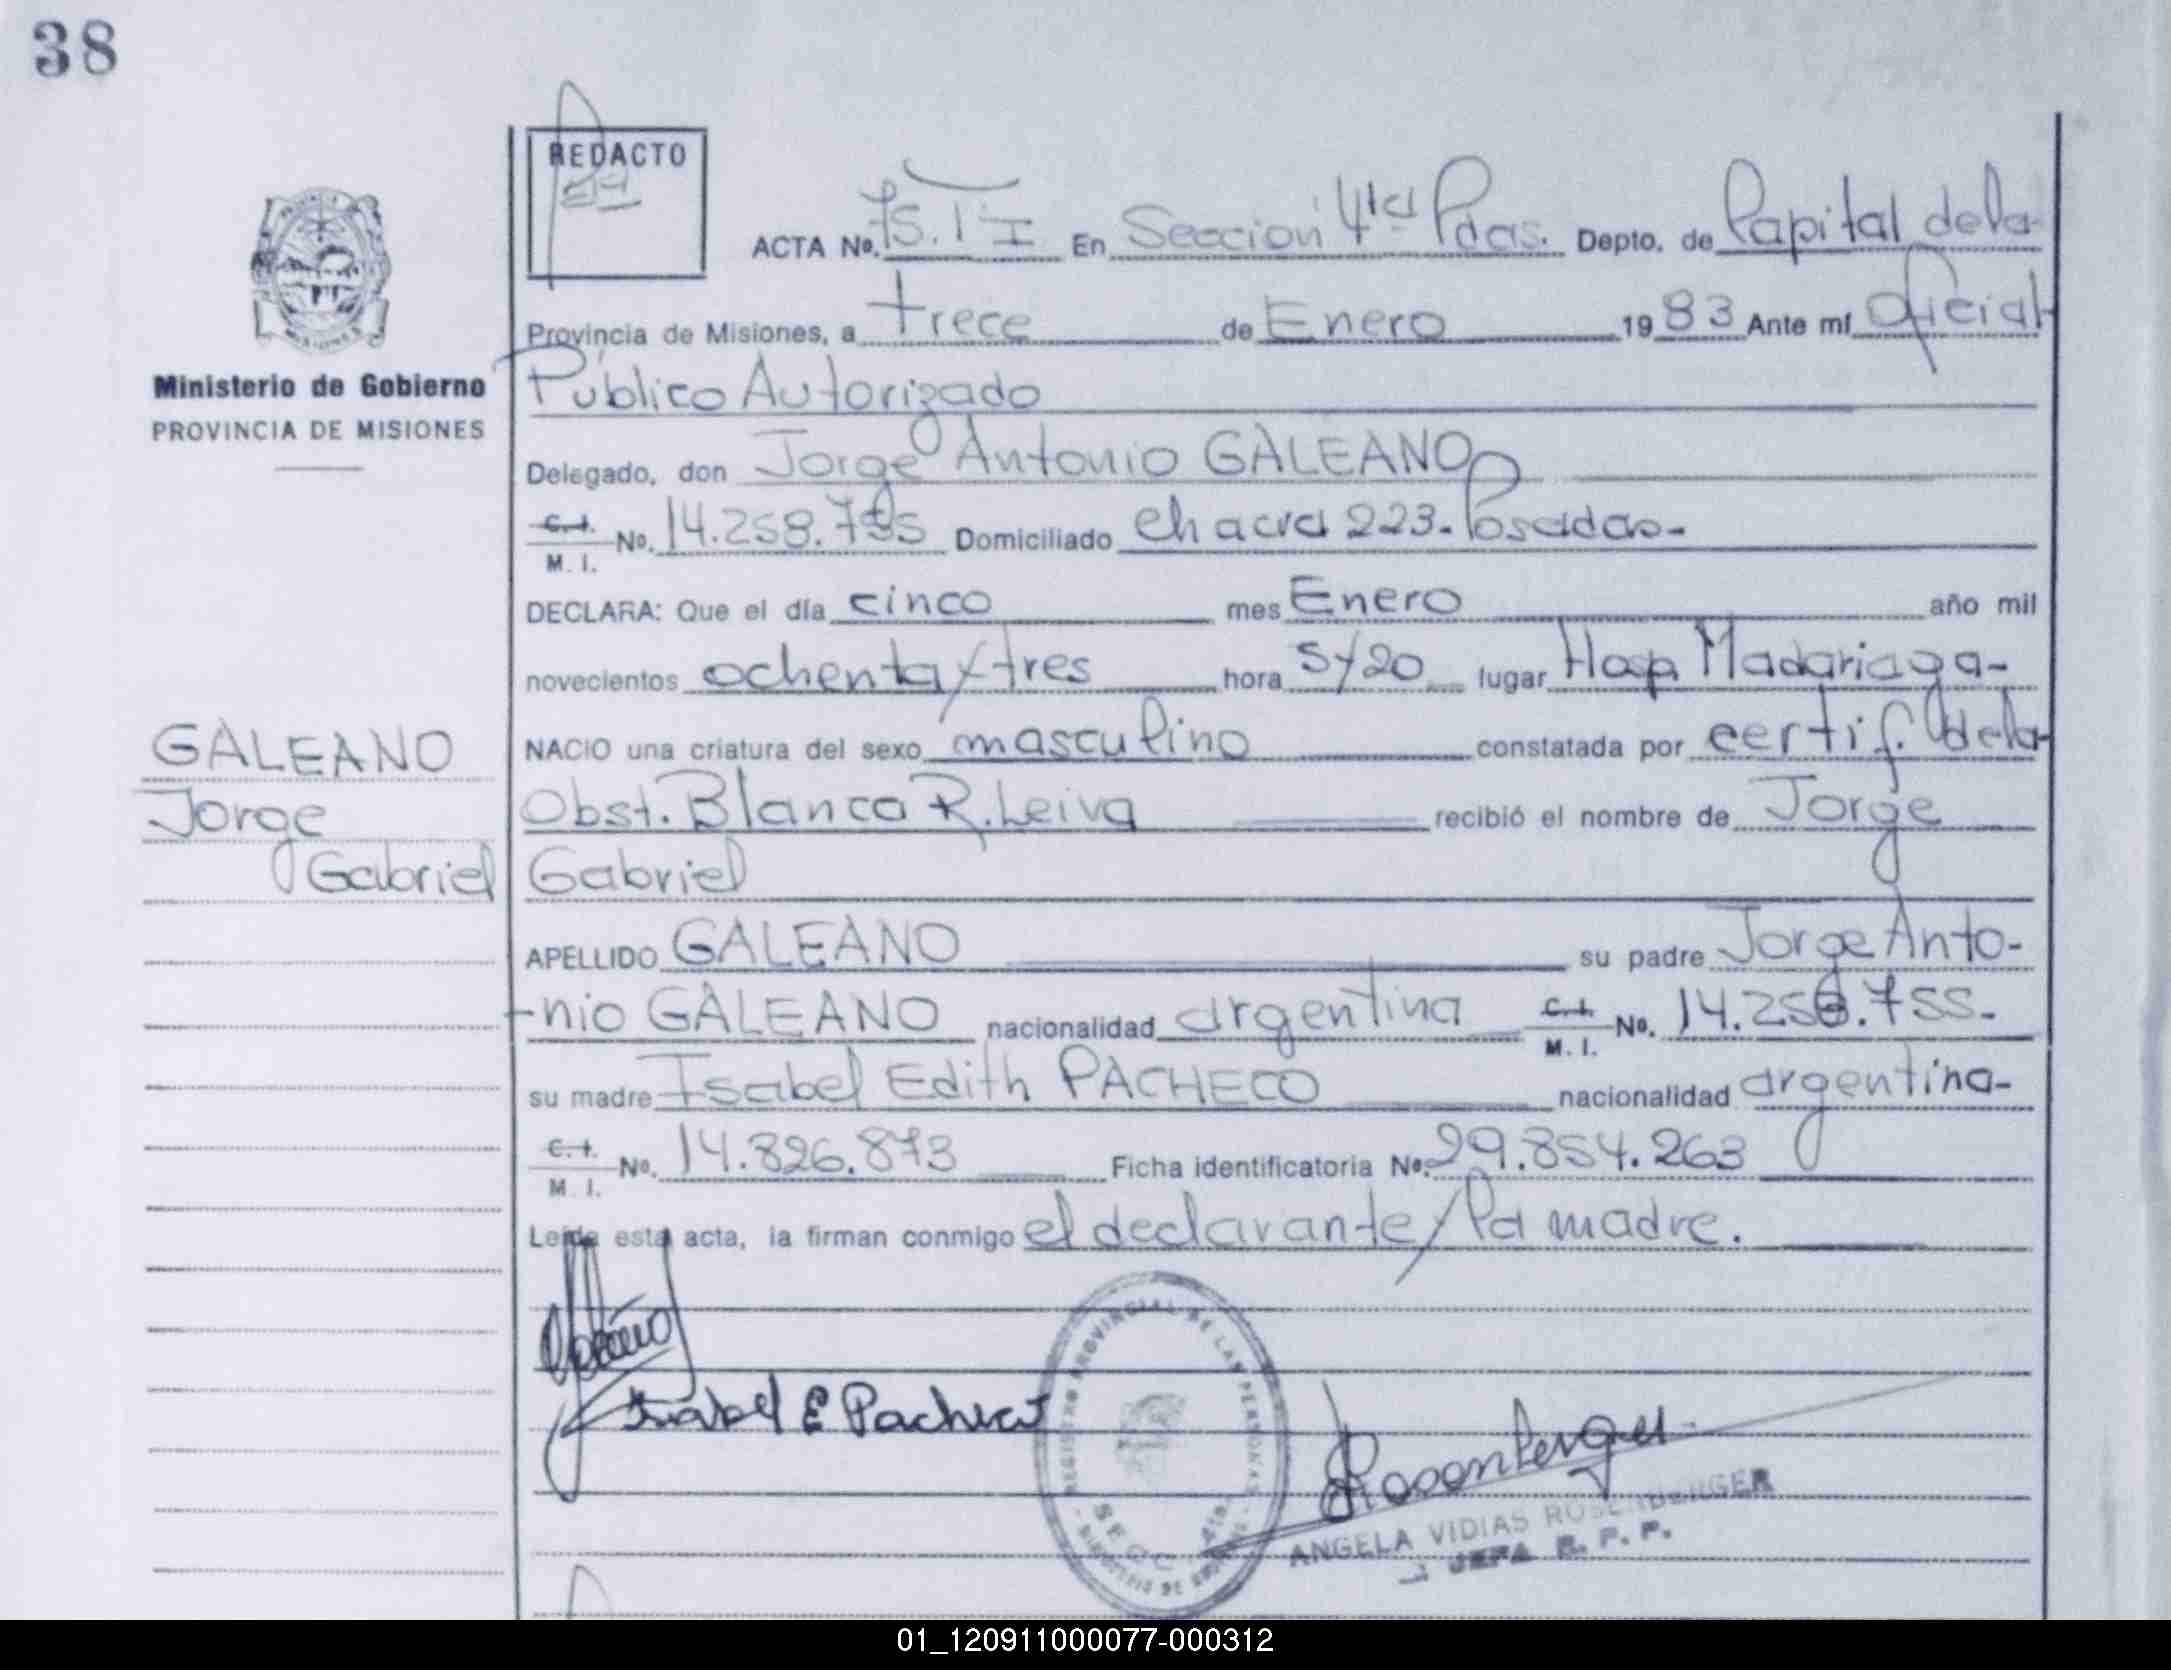 38
REDACTO
ACTA No. 75.T I En Sección 4ta Pdas. Depto. de Capital de la
Provincia de Misiones, a trece de Enero 1983 Ante mí Oficial
Público Autorizado
Ministerio de Gobierno
PROVINCIA DE MISIONES
Delegado, don Jorge Antonio GALEANO
C.I. M. I. No. 14.258.755 Domiciliado Chacra 223. Posadas-
DECLARA: Que el día cinco mes Enero año mil
novecientos ochenta y tres hora 5y20 lugar Hosp Madariaga-
NACIO una criatura del sexo masculino constatada por certif. de la
Obst. Blanca R. Leiva recibió el nombre de Jorge
Gabriel
GALEANO
Jorge
Gabriel
APELLIDO GALEANO su padre Jorge Anto-
-nio GALEANO nacionalidad argentina C.I. M. I. No. 14.258.755-
su madre Isabel Edith PACHECO nacionalidad argentina-
C.I. M. I. No. 14.826.873 Ficha identificatoria No. 29.854.263
Leída esta acta, la firman conmigo el declarante y la madre.
Galeano
Isabel E Pacheco
REGISTRO PROVINCIAL DE LAS PERSONAS
SECC. 4ta.
MINISTERIO DE GOBIERNO
Rosenberger
ANGELA VIDIAS ROSENBERGER
JEFA R. P. P.
01_120911000077-000312